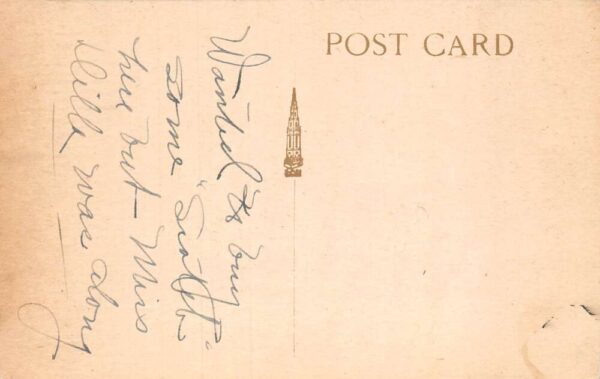 POST CARD
Wanted to buy
some "Scotch"
here but Miss
Dilla was along